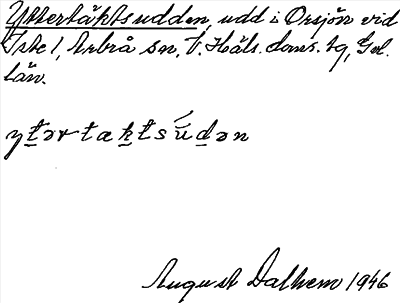 Yttertäktsudden, udd i Orsjön vid
Iste 1, Arbrå sn, V. Häls. doms. tg, Gvl.
län.
ytərtaktsúdən
August Dalhem 1946